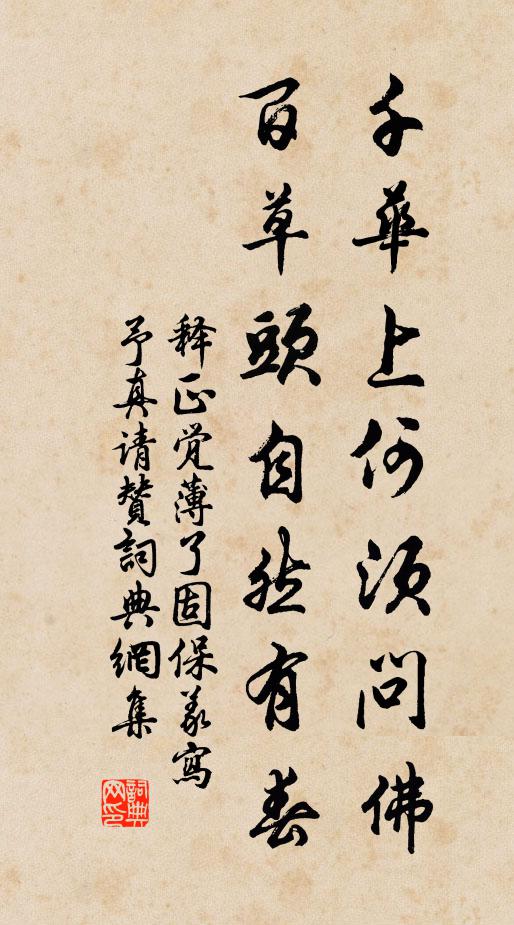 千華上何須問佛
百草頭自然有春
释正觉薄了固保義寫
予真请賛詞典網集
詞典
网印